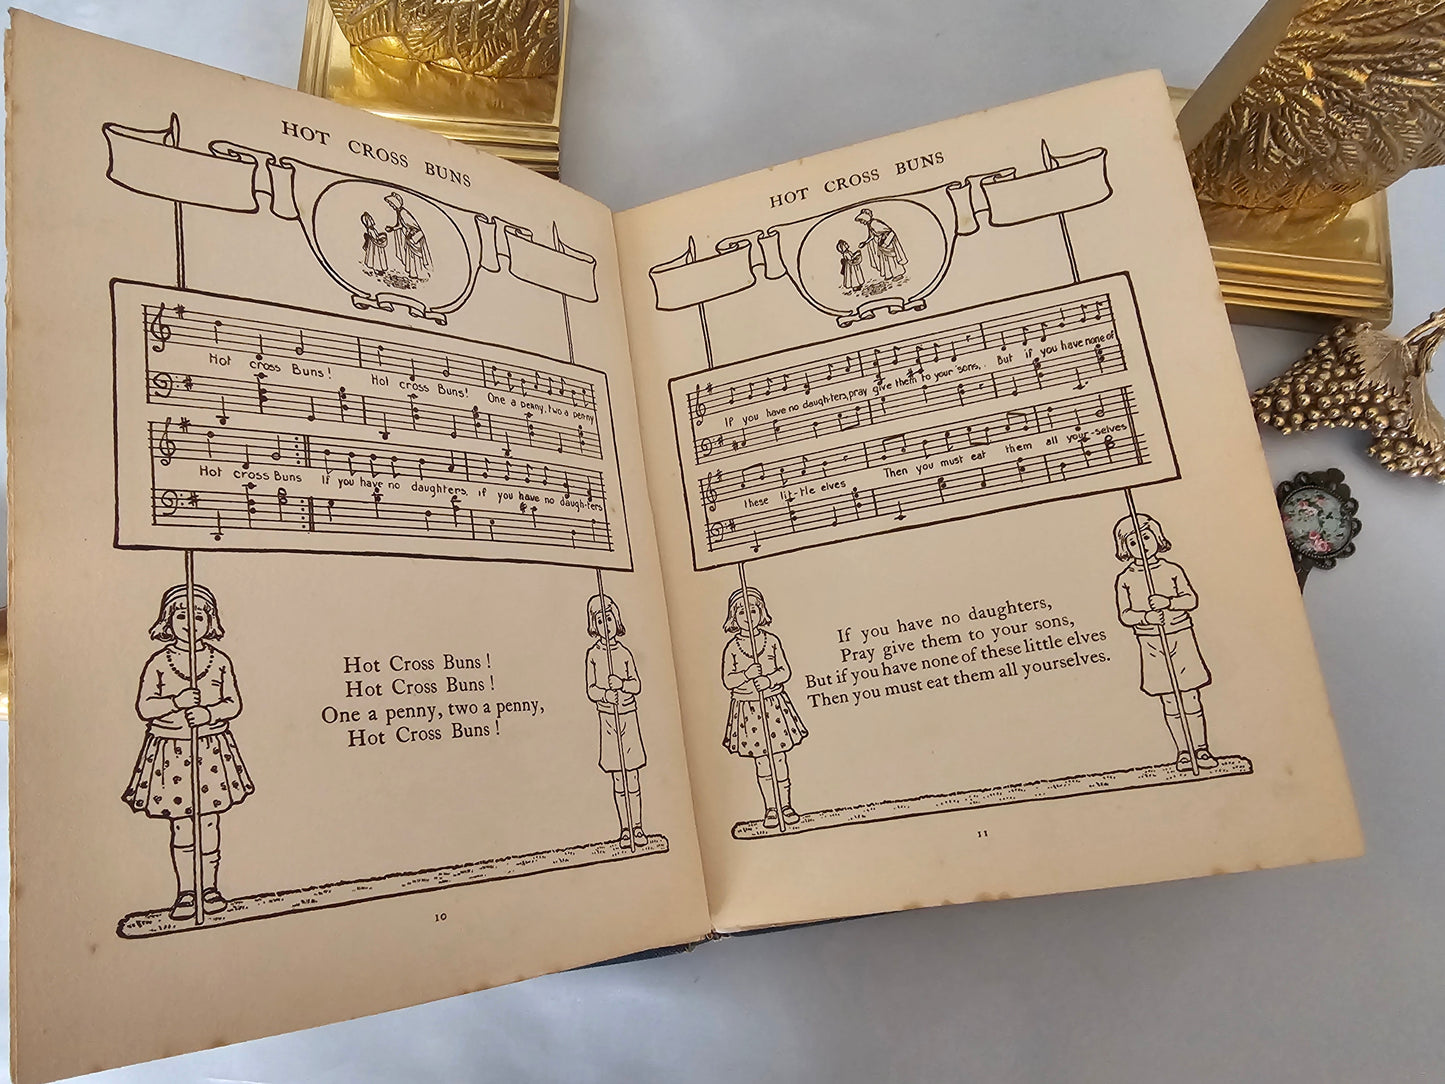 HOT CROSS BUNS
Hot cross Buns! Hot cross Buns! One a penny, two a penny
Hot cross Buns If you have no daughters, if you have no daugh-ters
Hot Cross Buns!
Hot Cross Buns!
One a penny, two a penny,
Hot Cross Buns!
10
HOT CROSS BUNS
If you have no daugh-ters, pray give them to your sons, But if you have none of
these lit-tle elves Then you must eat them all your-selves
If you have no daughters,
Pray give them to your sons,
But if you have none of these little elves
Then you must eat them all yourselves.
11